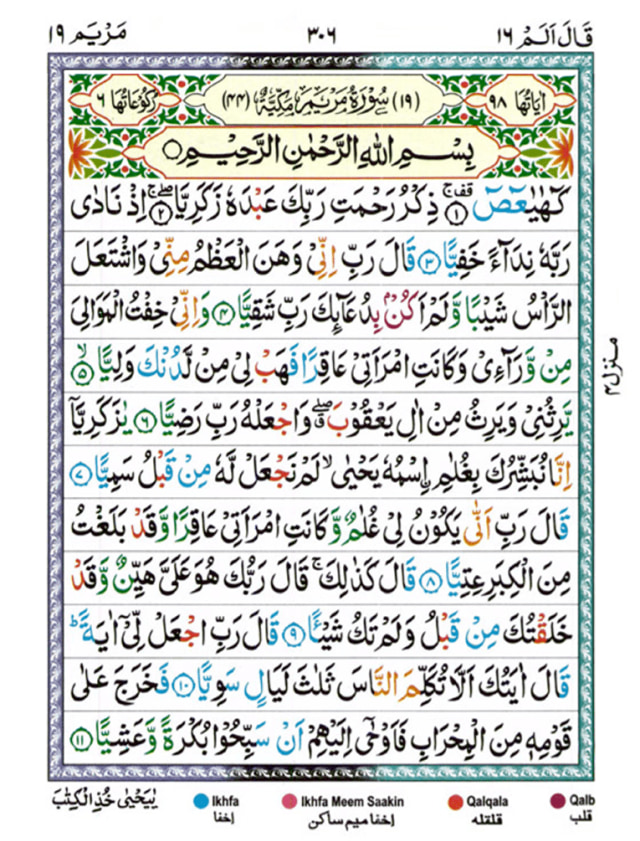 قَالَ اَلَمْ ١٦
٣٠٦
مَرْيَم ١٩
اٰیَاتُهَا ٩٨
(١٩) سُوْرَةُ مَرْیَمَ مَکِّیَّةٌ (٤٤)
رُکُوْعَاتُهَا ٦
بِسْمِ اللهِ الرَّحْمٰنِ الرَّحِیْمِ
كٓهٰیٰعٓصٓ ۚ١ ذِكْرُ رَحْمَتِ رَبِّكَ عَبْدَهٗ زَكَرِیَّا ۖۚ٢ اِذْ نَادٰى
رَبَّهٗ نِدَآءً خَفِیًّا ٣ قَالَ رَبِّ اِنِّیْ وَهَنَ الْعَظْمُ مِنِّیْ وَاشْتَعَلَ
الرَّاْسُ شَیْبًا وَّلَمْ اَكُنْۢ بِدُعَآئِكَ رَبِّ شَقِیًّا ٤ وَاِنِّیْ خِفْتُ الْمَوَالِیَ
مِنْ وَّرَآءِیْ وَكَانَتِ امْرَاَتِیْ عَاقِرًا فَهَبْ لِیْ مِنْ لَّدُنْكَ وَلِیًّا ۙ٥
یَّرِثُنِیْ وَیَرِثُ مِنْ اٰلِ یَعْقُوْبَ ۖۗ وَاجْعَلْهُ رَبِّ رَضِیًّا ٦ یٰزَكَرِیَّاۤ
اِنَّا نُبَشِّرُكَ بِغُلٰمِ ِ۟اسْمُهٗ یَحْیٰى ۙ لَمْ نَجْعَلْ لَّهٗ مِنْ قَبْلُ سَمِیًّا ٧
قَالَ رَبِّ اَنّٰى یَكُوْنُ لِیْ غُلٰمٌ وَّكَانَتِ امْرَاَتِیْ عَاقِرًا وَّقَدْ بَلَغْتُ
مِنَ الْكِبَرِ عِتِیًّا ٨ قَالَ كَذٰلِكَ ۚ قَالَ رَبُّكَ هُوَ عَلَیَّ هَیِّنٌ وَّقَدْ
خَلَقْتُكَ مِنْ قَبْلُ وَلَمْ تَكُ شَیْـًٔا ٩ قَالَ رَبِّ اجْعَلْ لِّیْۤ اٰیَةً ؕ
قَالَ اٰیَتُكَ اَلَّا تُكَلِّمَ النَّاسَ ثَلٰثَ لَیَالٍ سَوِیًّا ١٠ فَخَرَجَ عَلٰى
قَوْمِهٖ مِنَ الْمِحْرَابِ فَاَوْحٰۤى اِلَیْهِمْ اَنْ سَبِّحُوْا بُكْرَةً وَّعَشِیًّا ١١
منزل ٤
یٰیَحْیٰى خُذِ الْكِتٰبَ
Ikhfa
إخفا
Ikhfa Meem Saakin
إخفا میم ساکن
Qalqala
قلقله
Qalb
قلب